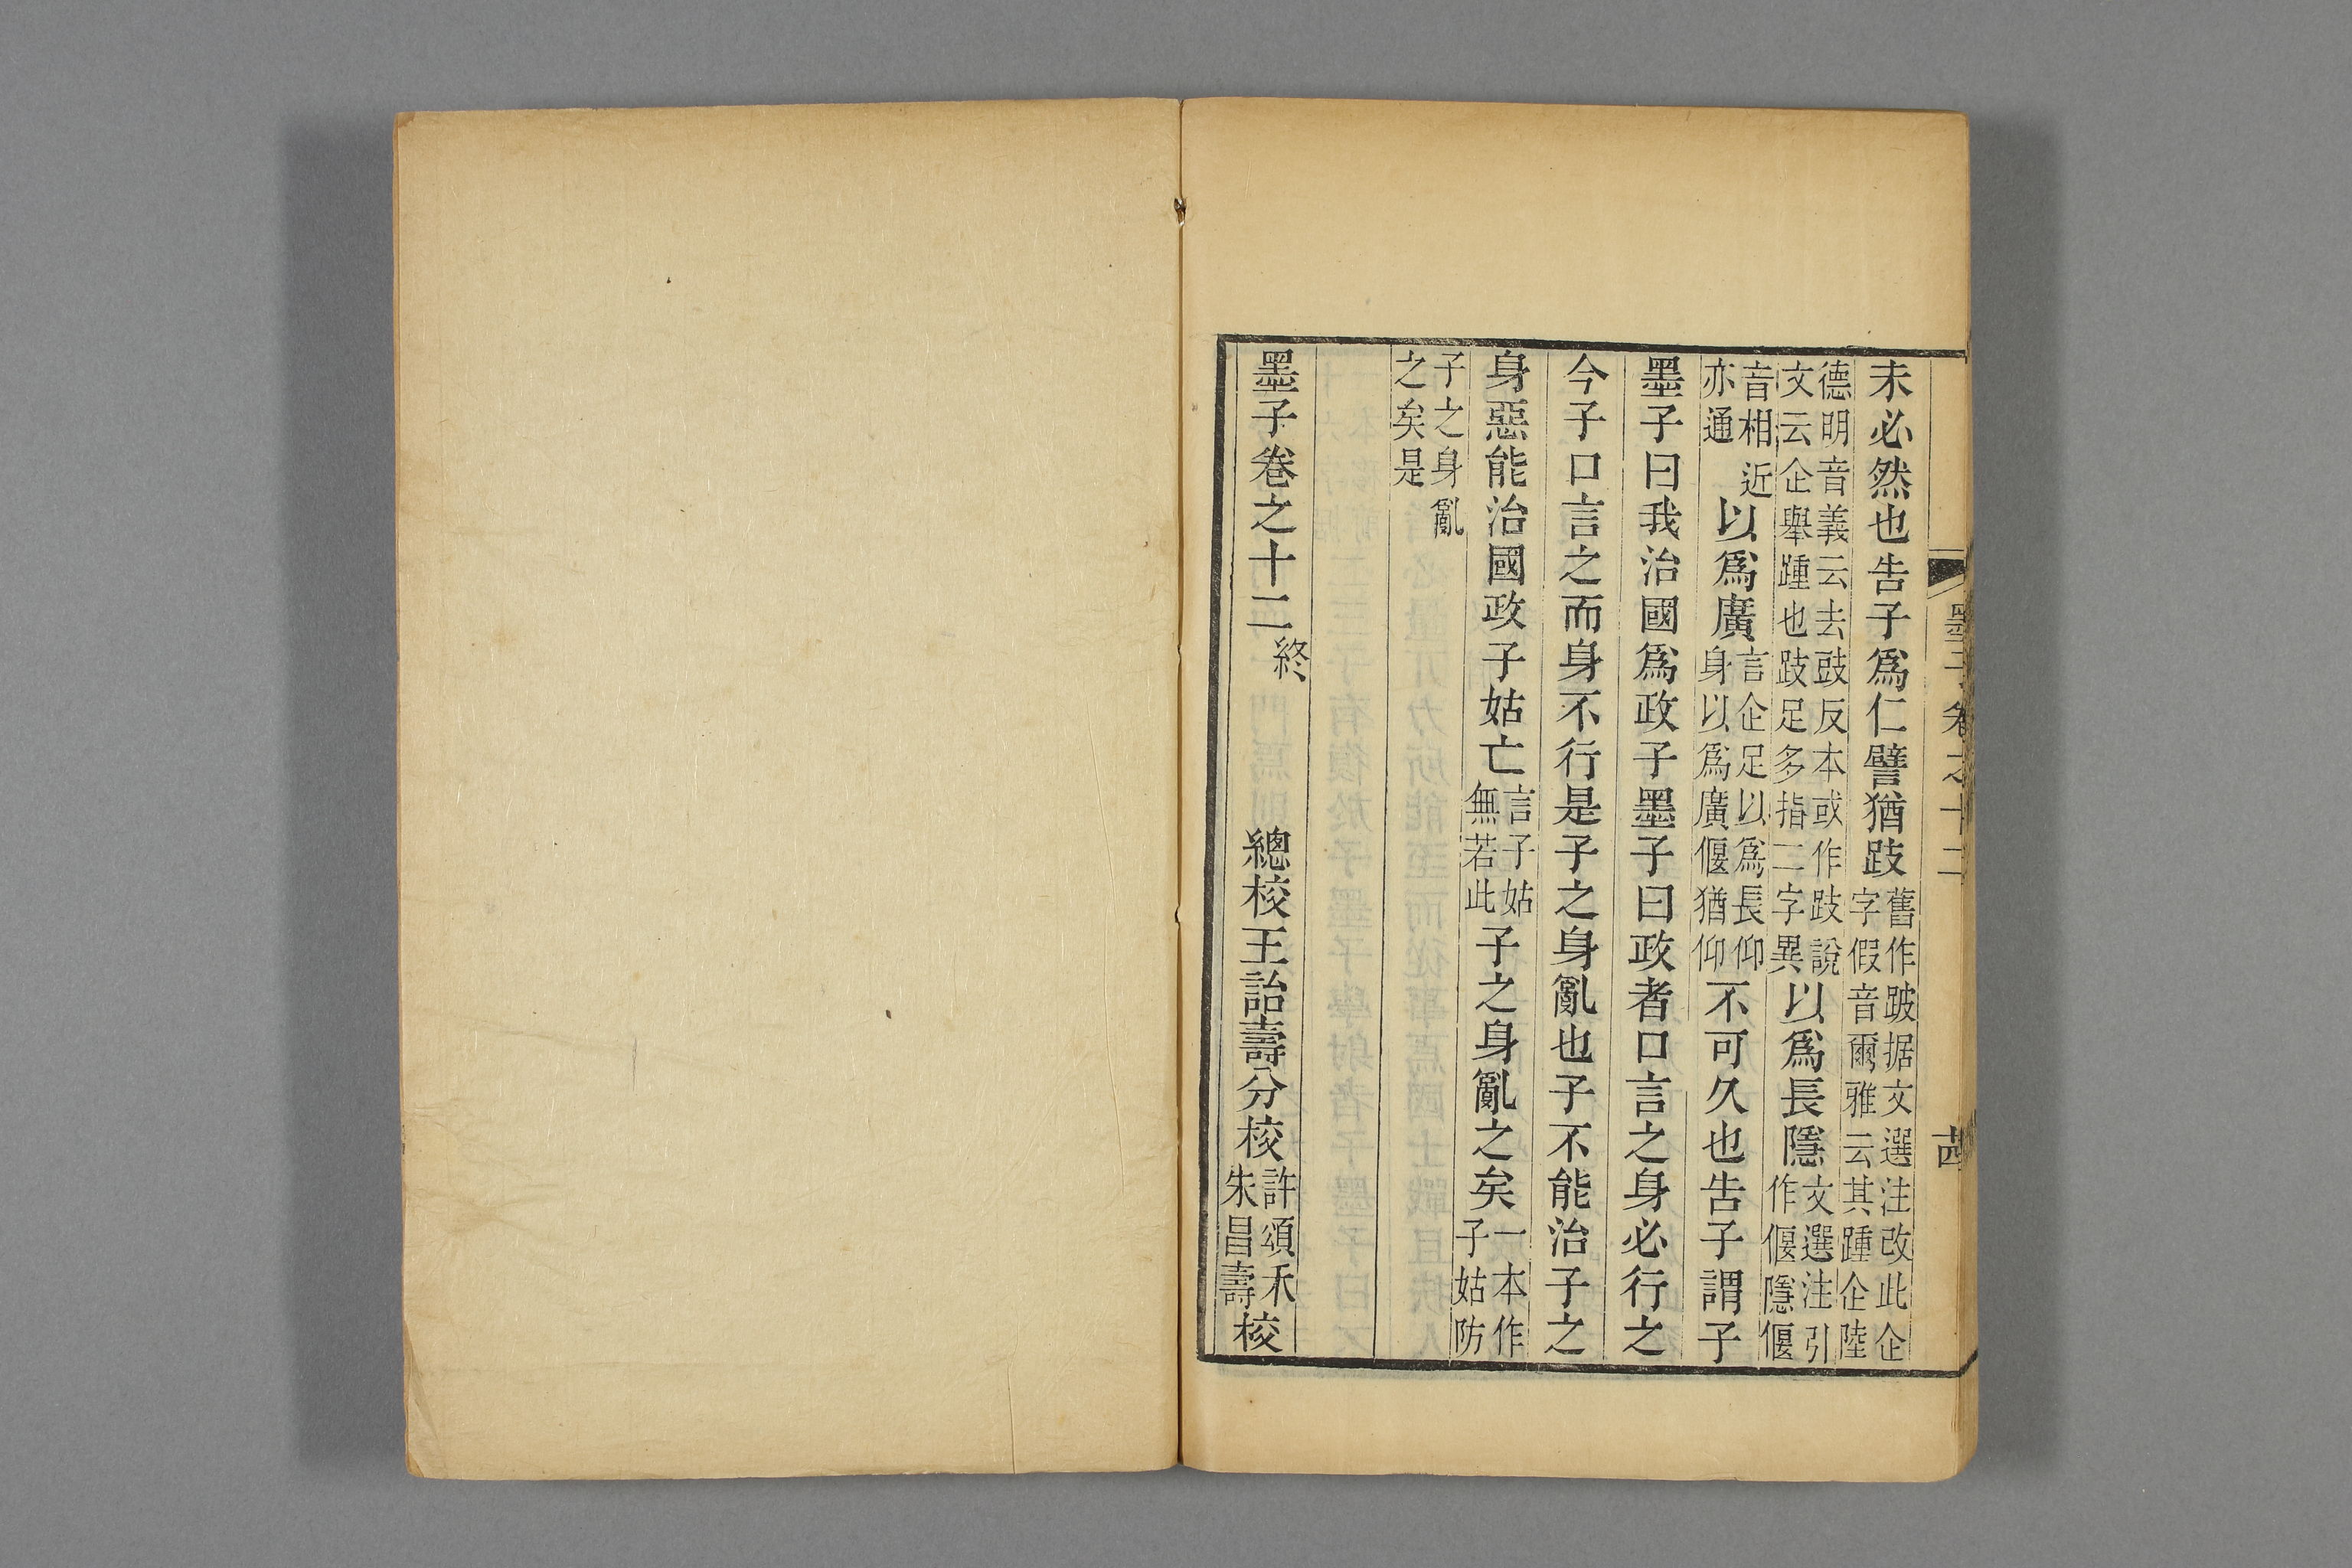 墨子卷之十二
西
未必然也告子爲仁譬猶跂舊作跛据文選注改此企字假音爾雅云其踵企陸
德明音義云去豉反本或作跂說文云企舉踵也跂足多指二字異以爲長隱文選注引作偃隱偃
音相近亦通以爲廣言企足以爲長仰身以爲廣偃猶仰不可久也告子謂子
墨子曰我治國爲政子墨子曰政者口言之身必行之
今子口言之而身不行是子之身亂也子不能治子之
身惡能治國政子姑亡言子姑無若此子之身亂之矣一本作子姑防
子之身亂之矣是
墨子卷之十二終 總校王詒壽分校許頌禾朱昌壽校